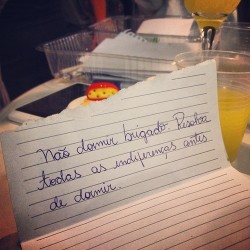 Não dormir brigado. Resolva
todas as indiferenças antes
de dormir.